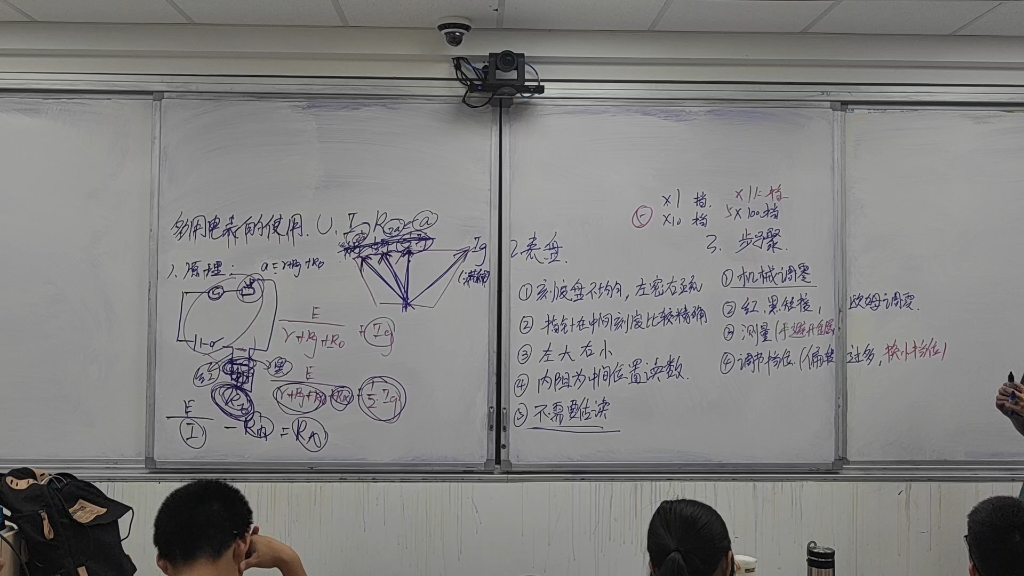 多用电表的使用. U, I
1.原理: a=r+Rg+R0
Ig
(满偏)
E
r+Rg+R0
=Ig
红
黑
E
r+Rg+R0+Rx
=½Ig
E
I
-R内=Rx
2.表盘
①刻度盘不均匀,左密右疏
②指针在中间刻度比较精确
③左大右小
④内阻为中间位置读数.
⑤不需要估读
x1档. x1k档
⑤
x10档 x100档
3. 步骤.
①机械调零
②红.黑短接, 欧姆调零.
③测量
④调节档位(偏转过多,换小档位)